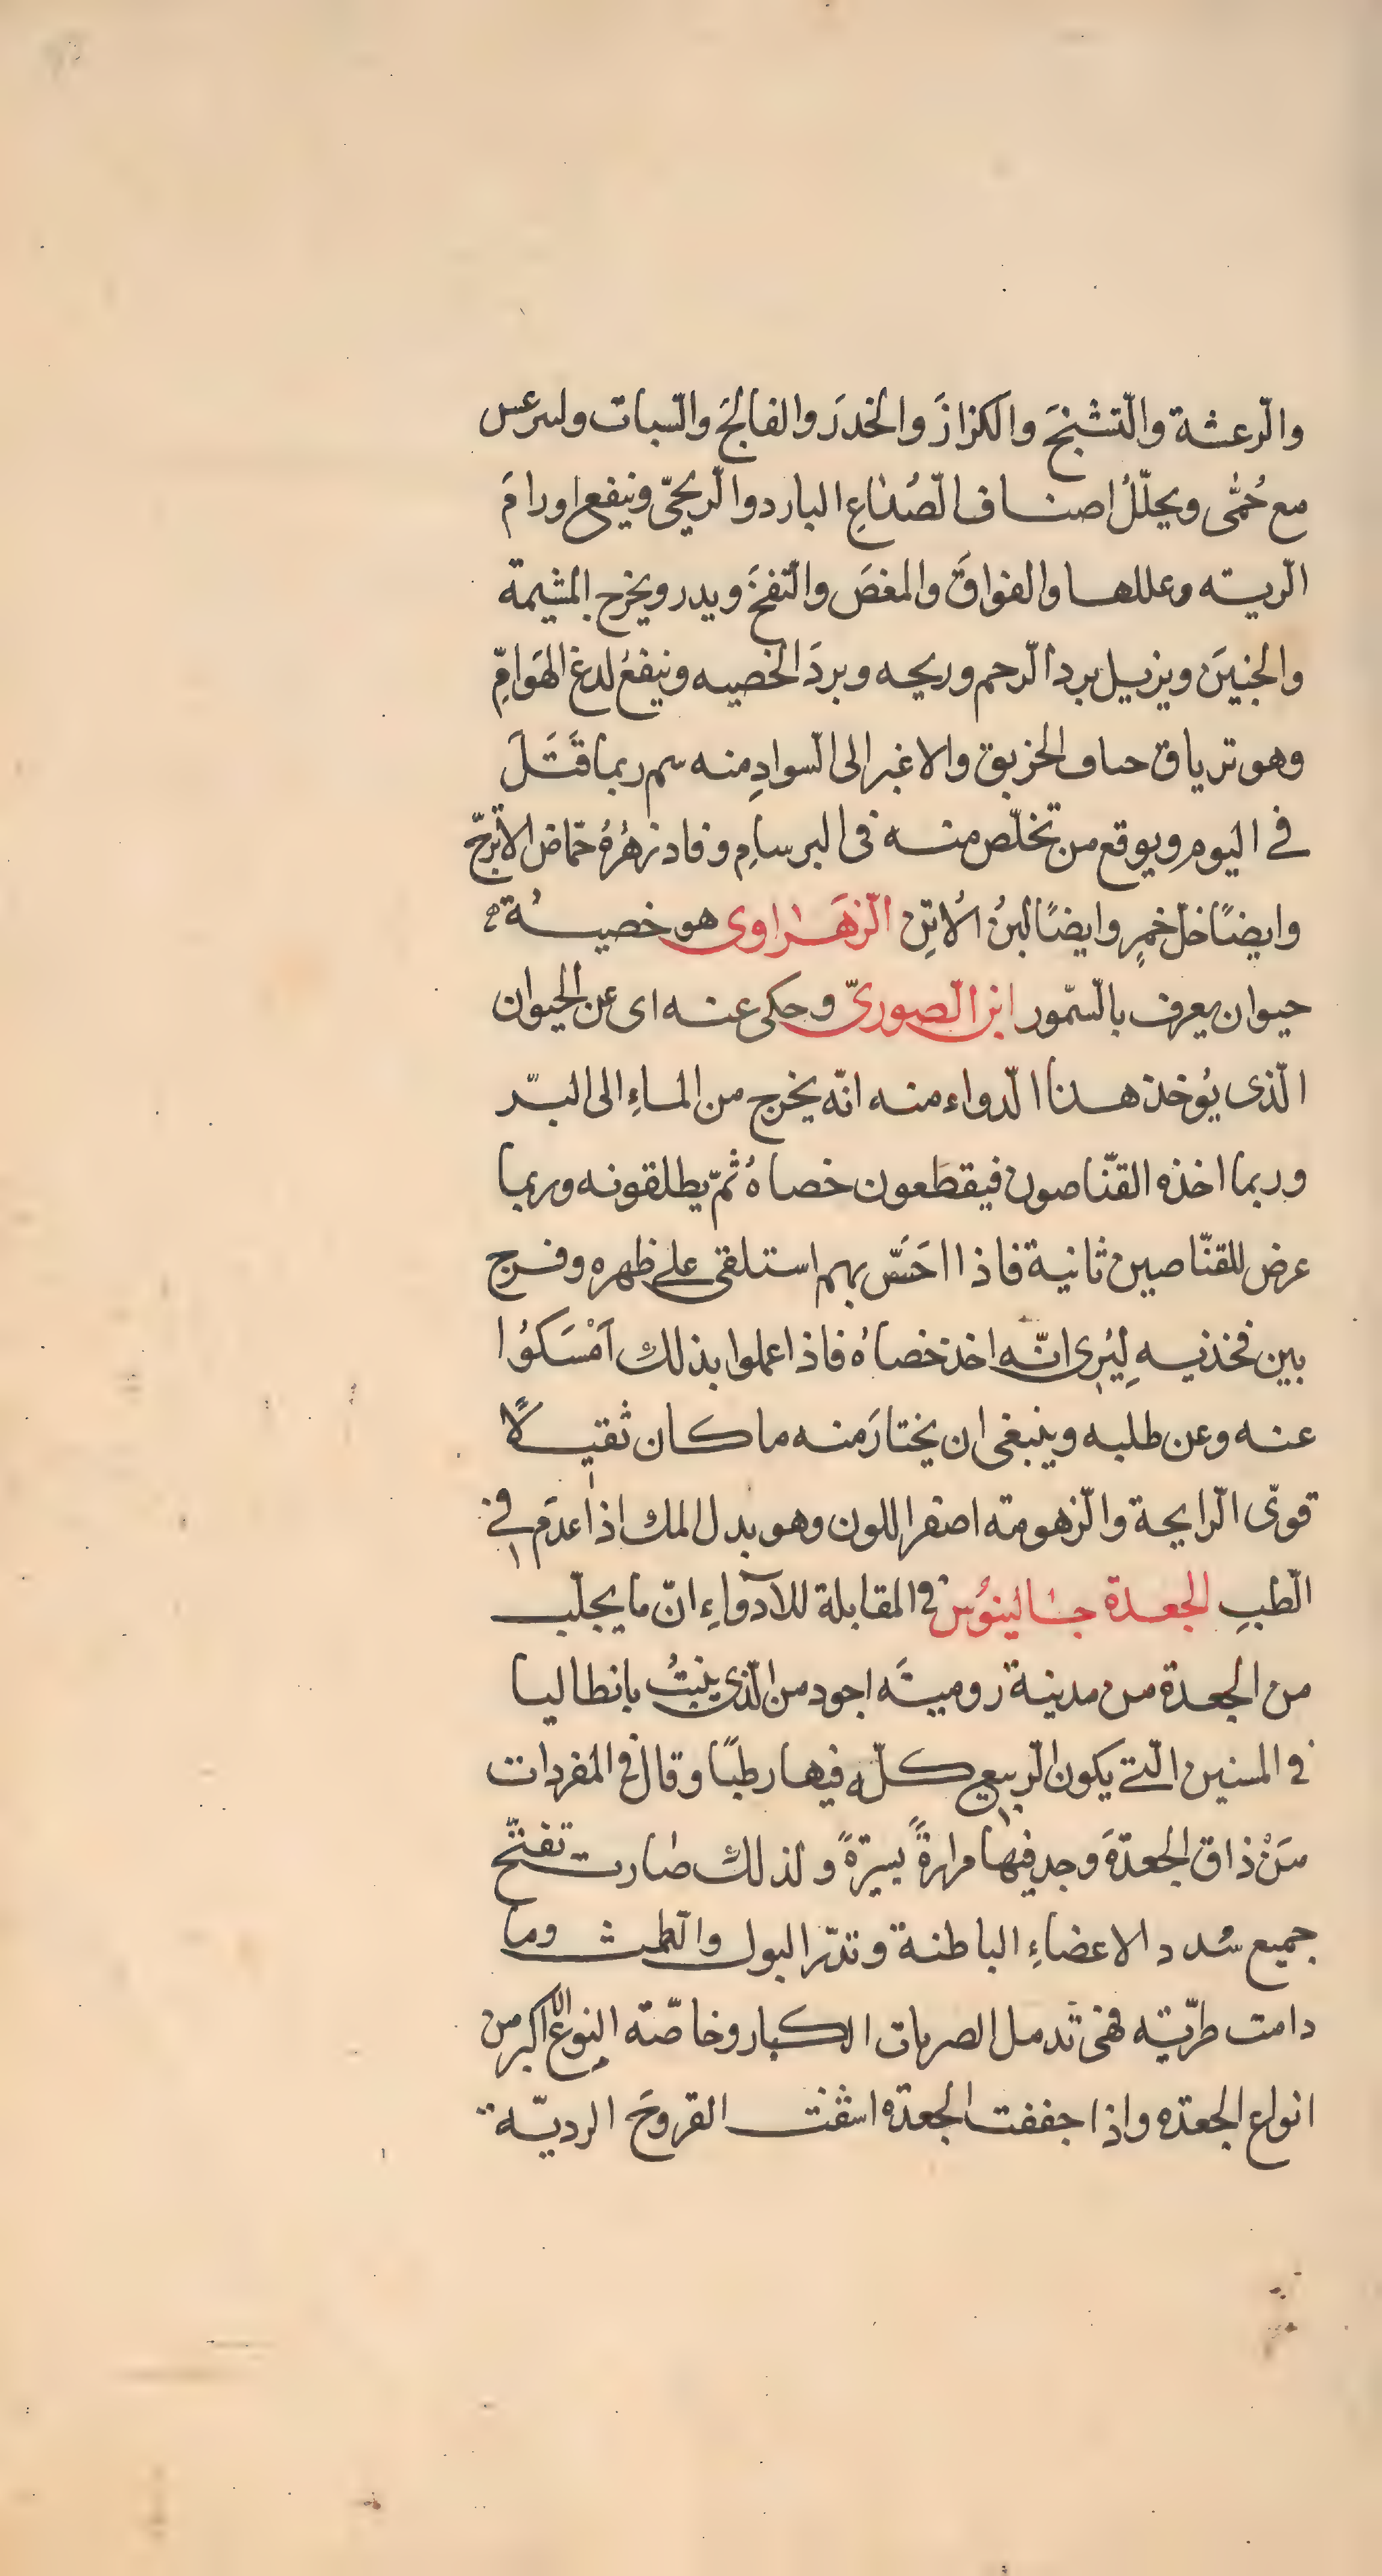 والرّعشة والتّشنجَ والكزازَ والخدَر والفالجَ والسّبات ولىىرعس
مع حُمّى ويحلّلُ اصناف الصُداعِ البارد والريحىّ وينفع اورامَ
الريـّه وعللها والفواقَ والمغصَ والنّفخَ ويدر ويخرج المشيمة
والجنينَ ويزيل برد الرّحم وريحه وبردَ الخصيه وينفعُ لدغ الهَوامِّ
وهو ترياق حىاف الخربق والاغبر الى السّوادِ منه سم ربما قَتَلَ
فى اليوم ويوقع من تخلّص منه فى البرسامِ وفادزهرُهُ حمّاض الاترجّ
وايضًا خلّ خمرٍ وايضًا لبنُ الاُتنِ الزّهراوى هو خصيةُ
حيوان يعرف بالسّمور ابن الصّورىّ وحكى عنه اى عن الحيوان
الّذى يُوخذ هذا الدّواء منه انّه يخرج من الماءِ الى البرّ
وربما اخذه القنّاصون فيقطَعون خصاهُ ثمّ يطلقونه وربما
عرض للقنّاصين ثانية فاذا احَسّ بهم استلقى على ظهره وفرج
بين فخذيه لِيُرِى انّه اخذ خصاهُ فاذا عملوا بذلك اَمْسَكُوا
عنه وعن طلبه وينبغى ان يختارَ منه ما كان ثقيلًا
قوىّ الرّايحة والزّهومة اصفر اللون وهو بدل المك اذا عدَم فى
الطّبِ الجعدة جالينوُس فى المقابلة للادواءِ انّ ما يجلب
من الجعدة من مدينة روميـَه اجود من الّذى ينبتُ بانطاليا
فى السنين الّتى يكون الرّبيع كلّه فيها رطبًا وقال فى المفردات
مَنْ ذاق الجعدَةَ وجد فيها مرارةً يسيرَةً ولذلك صارت تفتّح
جميع سُدد الاعضاءِ الباطنة وتدرّ البول والطّمث وما
دامت طريّه فهى تَدمل الضربات الكبار وخاصّة النوع الاكبر من
انواع الجعدَه واذا جففت الجعدَه اشفت القروحَ الرديّة